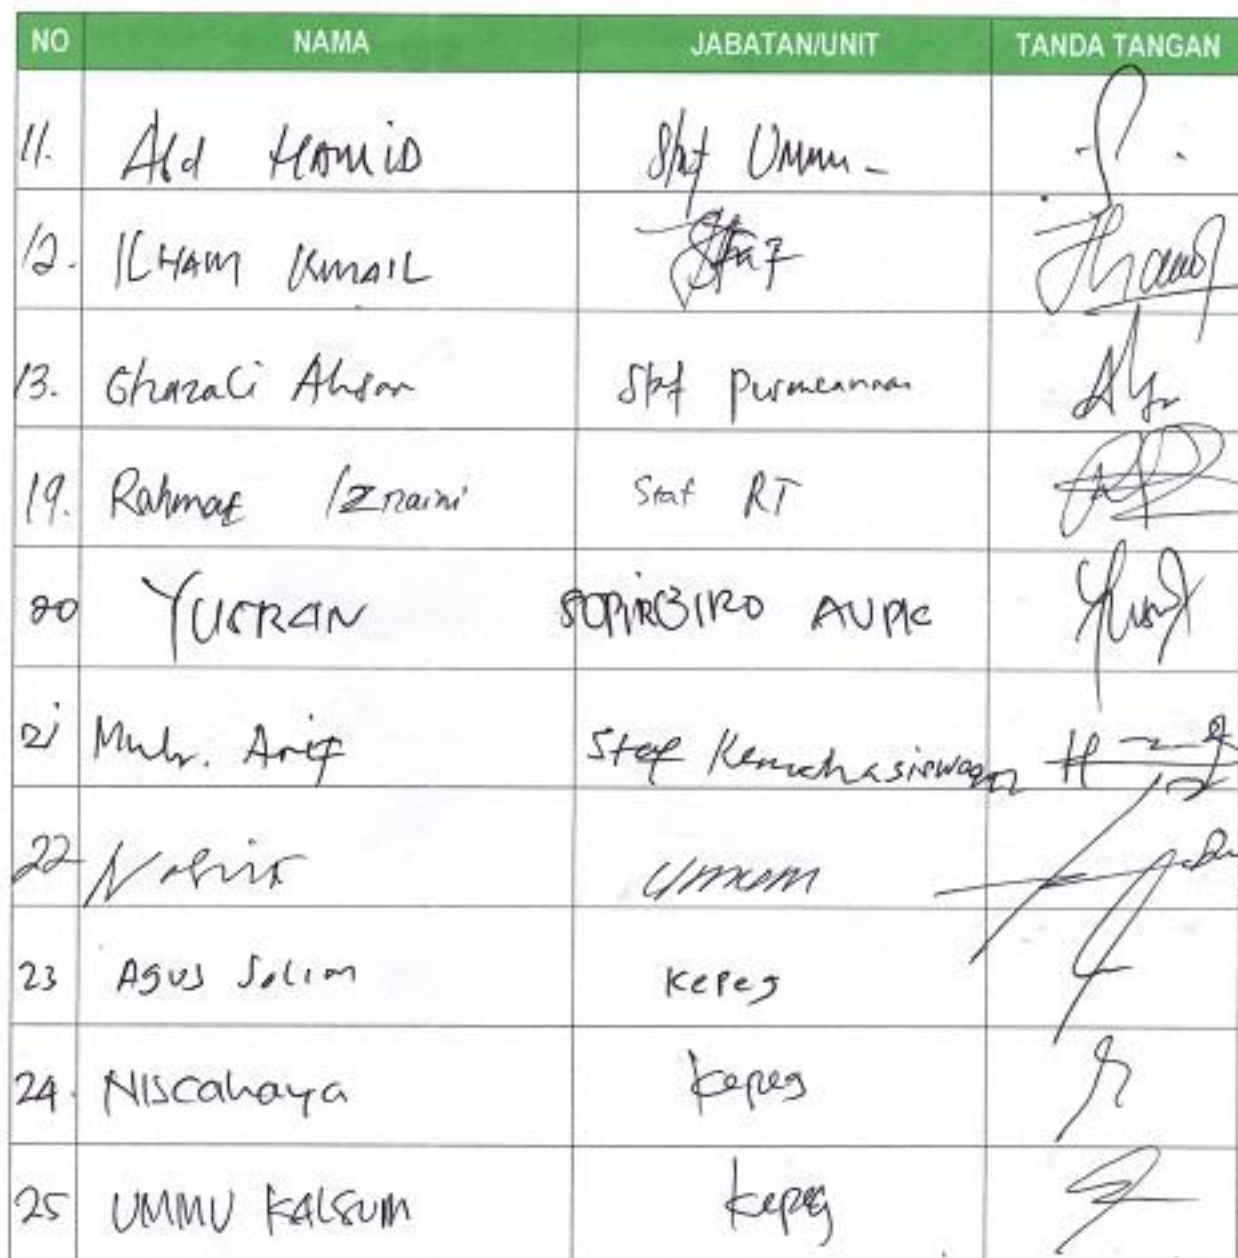 NO NAMA JABATAN/UNIT TANDA TANGAN
11. Abd HAMID Staf Umum -
12. ILHAM KMAIL Staf
13. Ghazali Ahsan Staf
19. Rahmat Staf RT
20 YUSRAN SOPIR BIRO AUPK
21 Muh. Arif Staf Kemahasiswaan
22 umum
23 Agus Salim Kepeg
24. Niscahaya Kepeg
25 UMMU KALSUM Kepeg